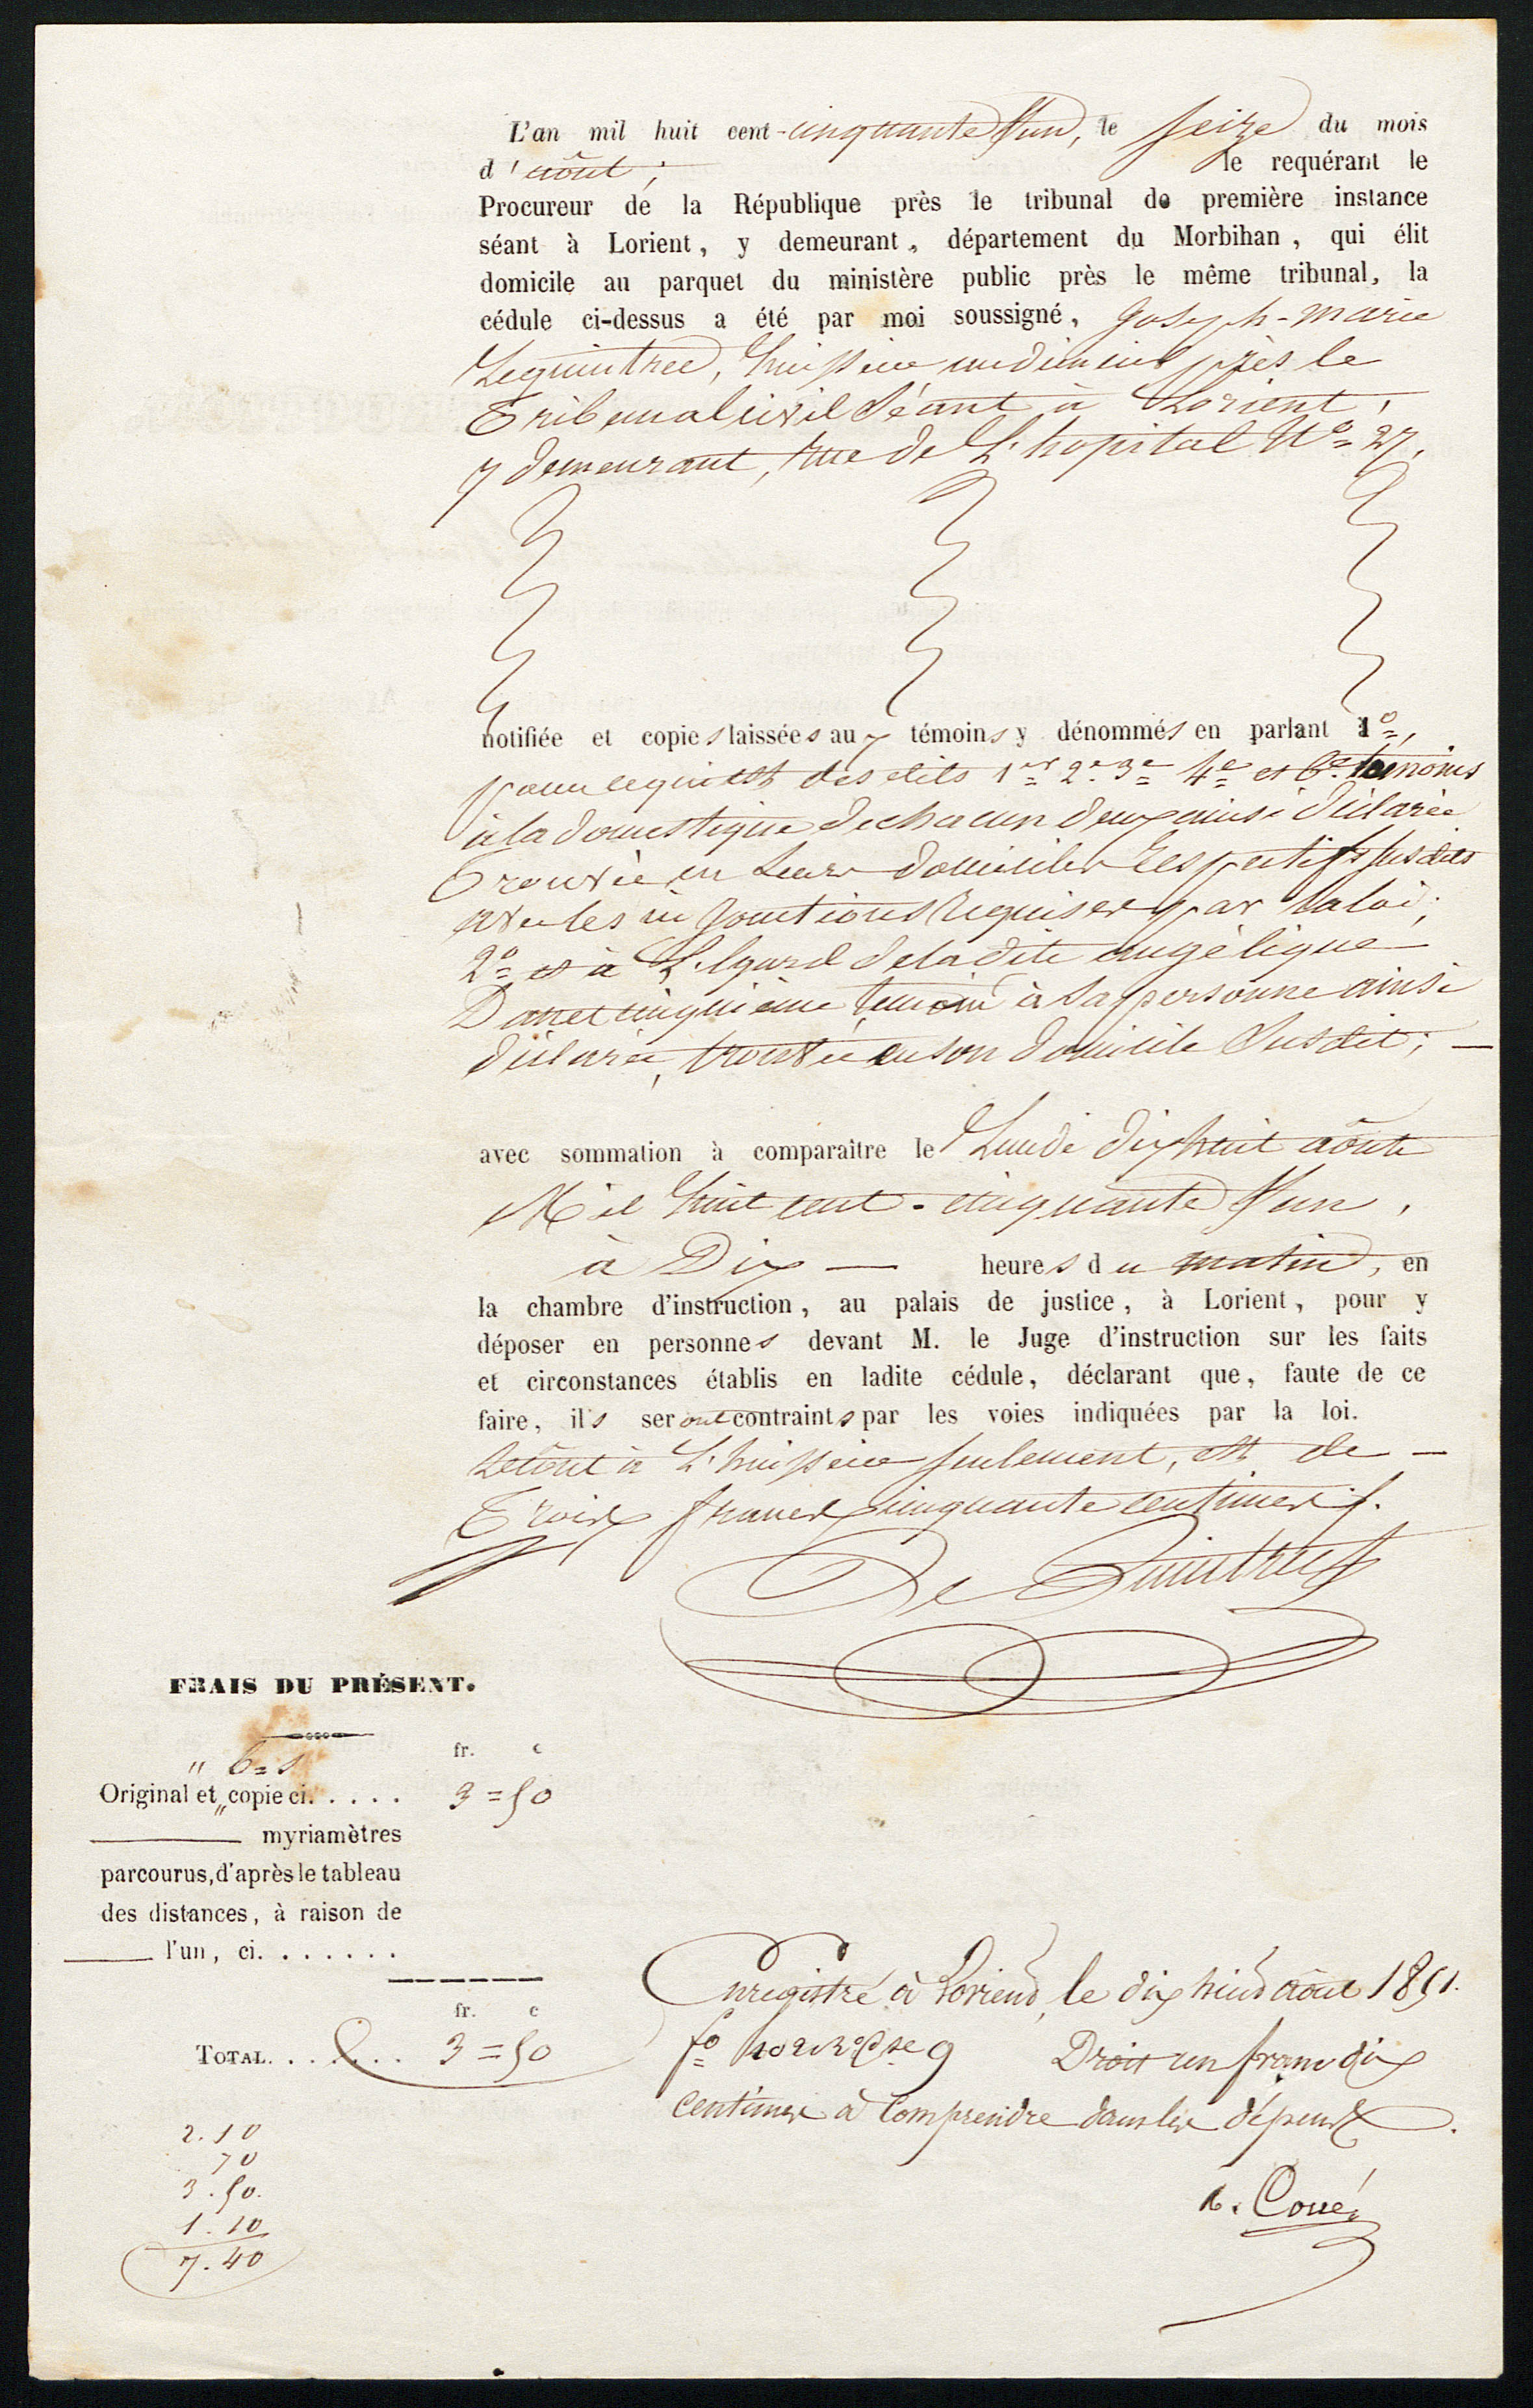 L'an mil huit cent-cinquante & un, le seize du mois
d'aôut; le requérant le
Procureur de la République près le tribunal de première instance
séant à Lorient, y demeurant, département du Morbihan, qui élit
domicile au parquet du ministère public près le même tribunal, la
cédule ci-dessus a été par moi soussigné, Joseph-marie
Lequintrec, huissier audiencier près le
Tribunal civil Séant à Lorient,
y demeurant, rue de L'hopital N° 27,
notifiée et copies laissées aux témoins y dénommés en parlant 1°,
pour ce qui est des dits 1er 2e 3e 4e et 6e temoins
à la domestique de chacun deux ainsi déclarée
Trouvée en Leurs domiciles respectifs susdits
avec les injonctions requises par la loi;
2° et à L'égard de la dite angélique
Danet cinquième temoin à Sa personne ainsi
déclarée, trouvée en son domicile Susdit;
avec sommation à comparaître le Lundi dix huit aôut
Mil huit cent-cinquante & un,
à Dix heures du matin, en
la chambre d'instruction, au palais de justice, à Lorient, pour y
déposer en personnes devant M. le Juge d'instruction sur les faits
et circonstances établis en ladite cédule, déclarant que, faute de ce
faire, ils seront contraints par les voies indiquées par la loi.
Le coût à L'huissier seulement, est de
Trois francs cinquante centimes.
Le Quintrec
FRAIS DU PRÉSENT.
fr. c
" 6=s
Original et "copie ci. . . . . 3=50
myriamètres
parcourus, d'après le tableau
des distances, à raison de
l'un, ci. . . . . . .
fr. c
TOTAL. . . . . . . 3=50
2.10
70
3.50.
1.10
7.40
Enregistré à Lorient, le dix huit aôut 1851.
f° 9 Droit un franc dix
Centimes à Comprendre dans les dépens.
Coué